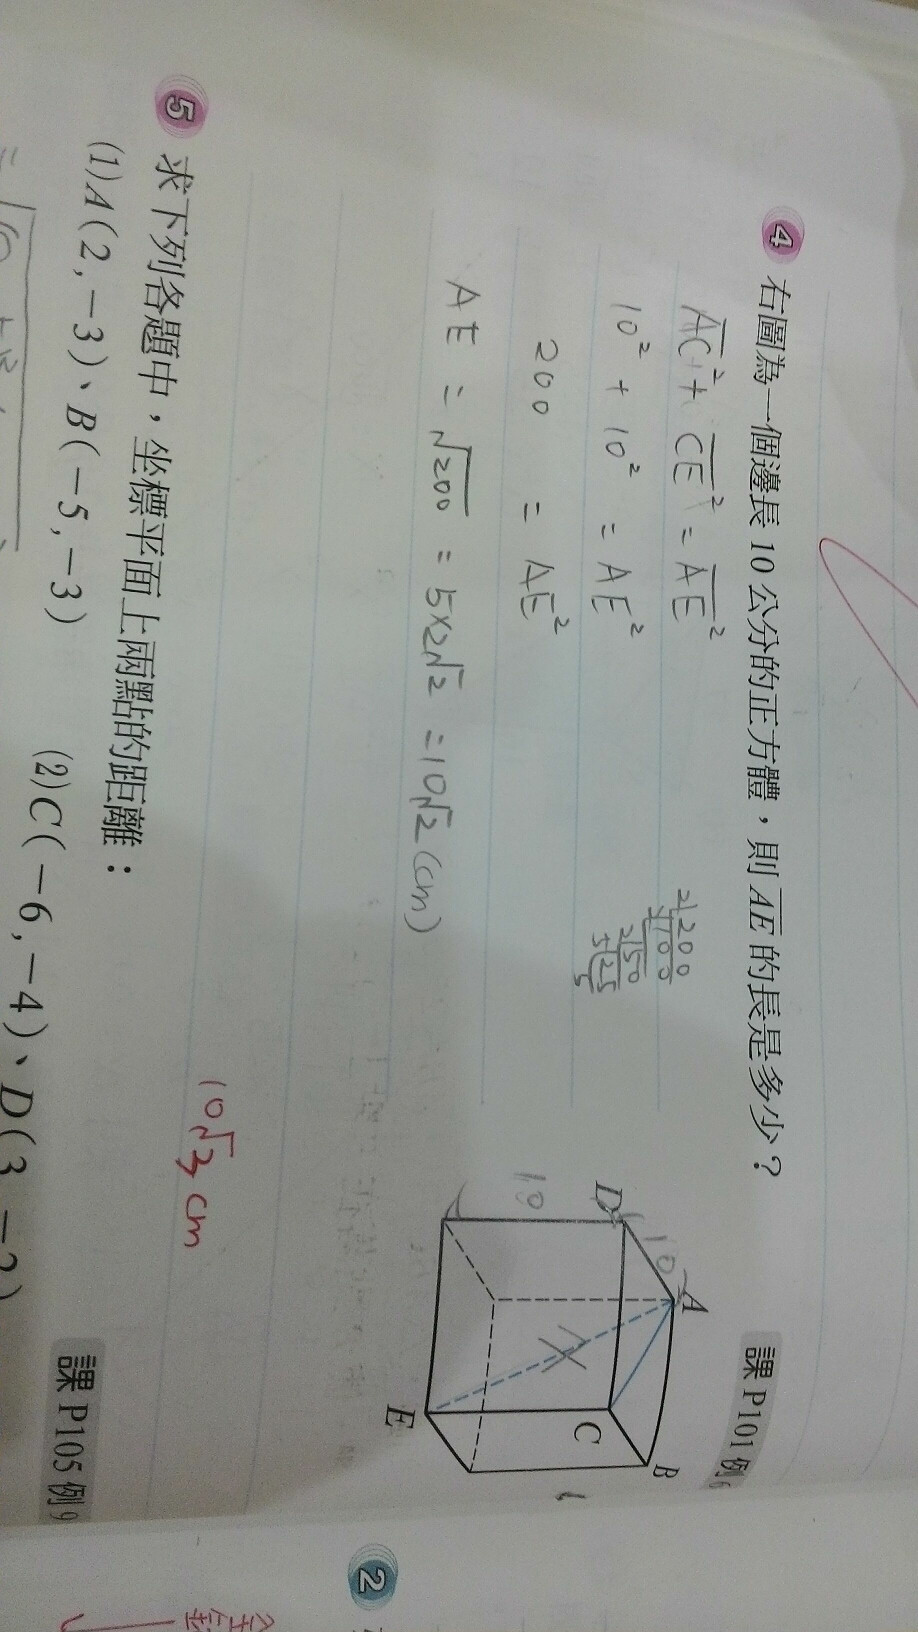 4 右圖為一個邊長 10 公分的正方體，則 AE 的長是多少？
課 P101 例6
AC² + CE² = AE²
10² + 10² = AE²
200 = AE²
AE = √200 = 5×2√2 = 10√2 (cm)
2|200
2|100
2|50
5|25
5
A
B
C
D
E
10
10
10√3 cm
5 求下列各題中，坐標平面上兩點的距離：
課 P105 例9
(1) A(2,−3)、B(−5,−3)
(2) C(−6,−4)、D(3,−2)
2